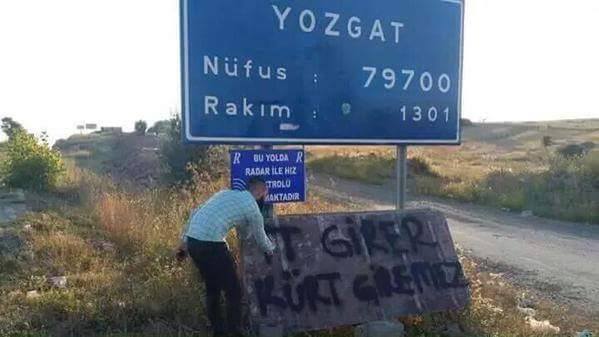 YOZGAT
Nüfus : 79700
Rakım : 1301
R BU YOLDA R
RADAR İLE HIZ
KONTROLÜ
YAPILMAKTADIR
İT GİRER
KÜRT GİREMEZ